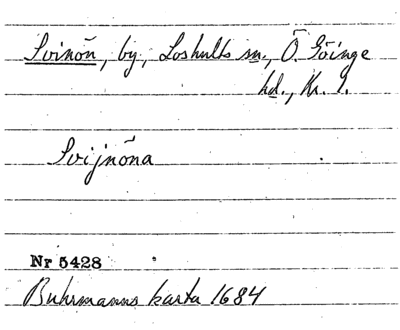 Svinön, by, Loshults sn., Ö. Göinge
hd., Kr. l.
Svijnöna
Nr 5428
Buhrmanns karta 1684